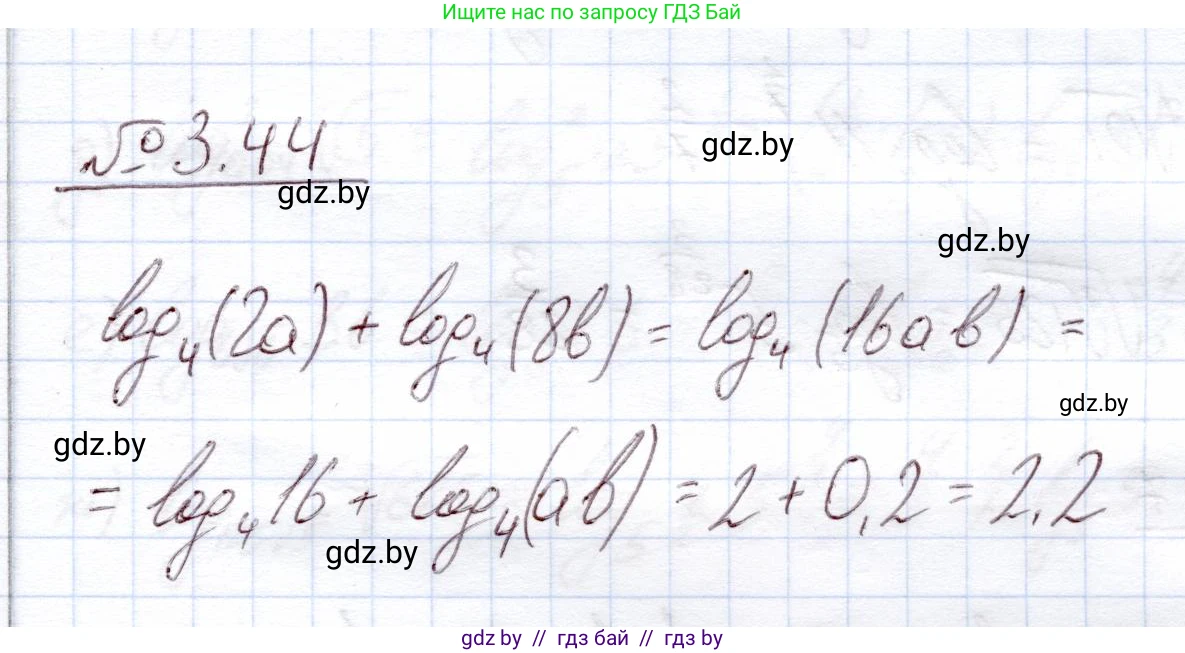 Ищите нас по запросу ГДЗ Бай
№ 3.44
gdz.by
gdz.by
gdz.by
log₄(2a) + log₄(8b) = log₄(16ab) =
gdz.by
gdz.by
= log₄16 + log₄(ab) = 2 + 0,2 = 2,2
gdz.by
gdz.by // гдз бай // гдз by